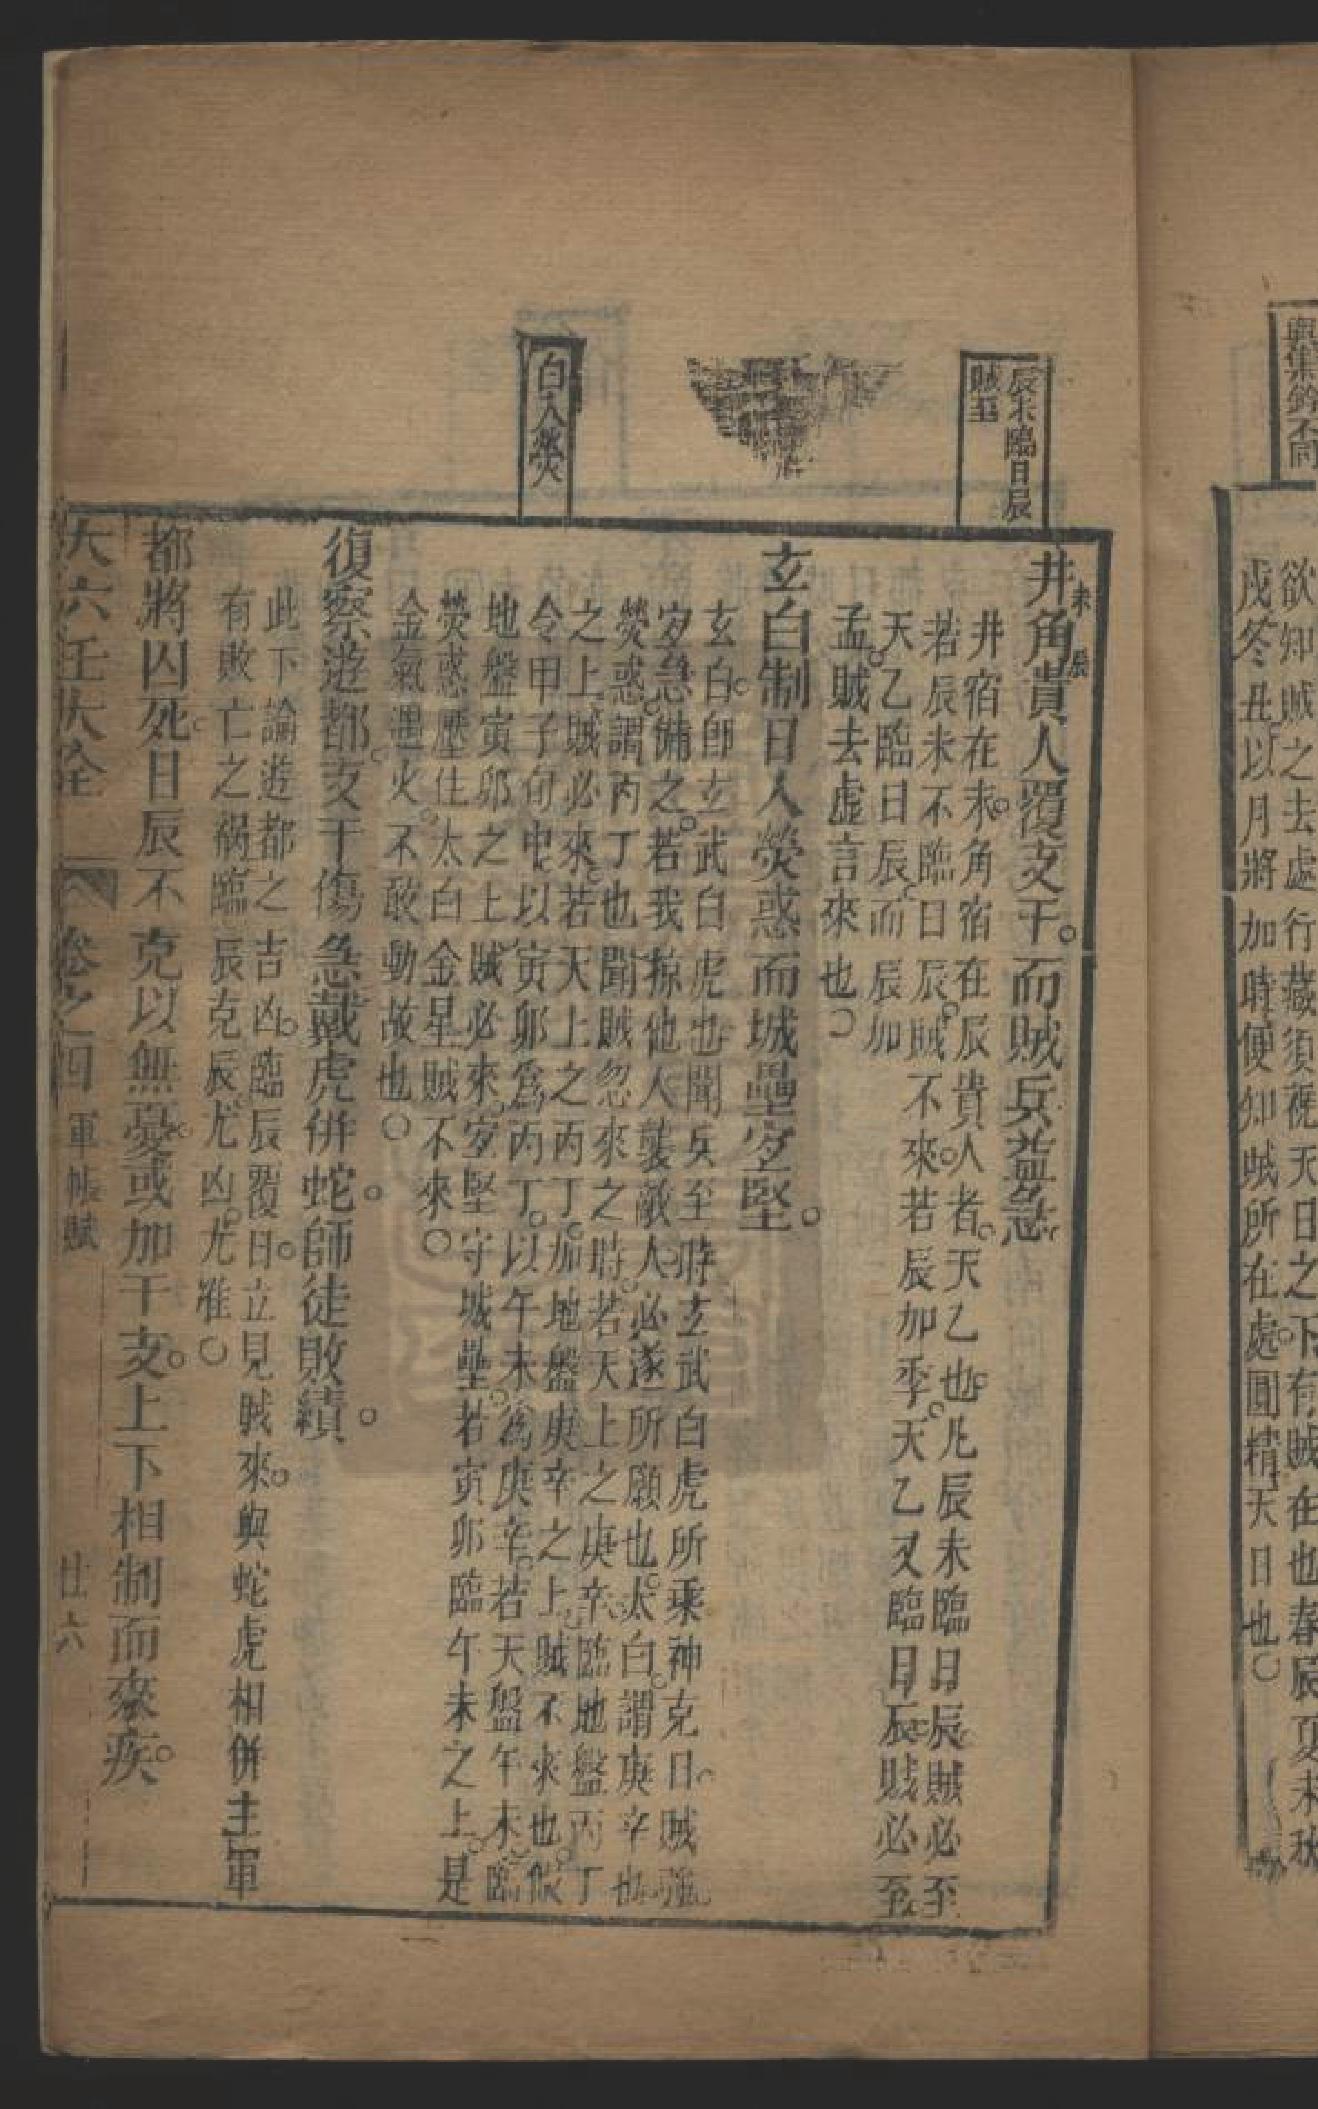 興集鈴不同
欲知賊之去處行藏須視天日之下有賊在也春辰夏未秋
戌冬丑以月將加時便知賊所在處圓精天日也
辰未臨日辰
賊至
白入熒
井未角辰貴人覆支干而賊兵益急
井宿在未角宿在辰貴人者天乙也凡辰未臨日辰賊必至
若辰未不臨日辰賊不來若辰加季天乙又臨日辰賊必至
天乙臨日辰而辰加
孟賊去虛言來也
玄白制日人熒惑而城壘安堅
玄白即玄武白虎也聞兵至時玄武白虎所乘神克日賊強
安急備之若我掠他人襲敵人必遂所願也太白謂庚辛也
熒惑謂丙丁也聞賊忽來之時若天上之庚辛臨地盤丙丁
之上賊必來若天上之丙丁加地盤庚辛之上賊不來也假
令甲子旬中以寅卯爲丙丁以午未爲庚辛若天盤午未臨
地盤寅卯之上賊必來安堅守城壘若寅卯臨午未之上是
熒惑歷住太白金星賊不來
金氣遇火不敢動故也
復察遊都支干傷急戴虎併蛇師徒敗績
此下論遊都之吉凶臨辰覆日立見賊來與蛇虎相併主軍
有敗亡之禍臨辰克辰尤凶尤准
都將囚死日辰不克以無憂或加干支上下相制而來疾
大六壬大全 卷之四 軍帳賦 廿六